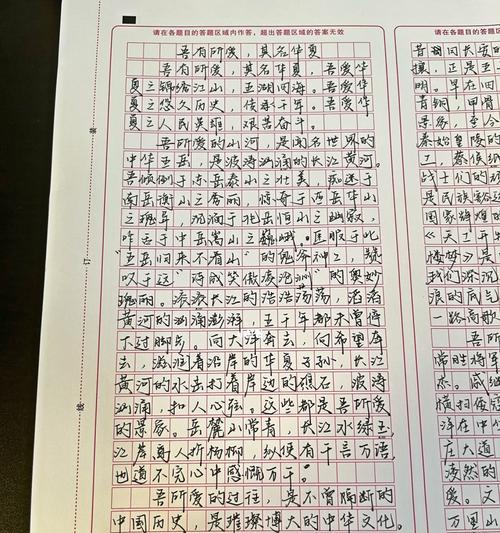 请在各题目的答题区域内作答，超出答题区域的答案无效
吾有所爱，其名华夏
吾有所爱，其名华夏，吾爱华
夏之锦绣江山，五湖四海。吾爱华
夏之悠久历史，传承千年。吾爱华
夏之人民英雄，艰苦奋斗。
吾所爱的山河，是闻名世界的
中华五岳，是波涛汹涌的长江黄河。
吾倾倒于东岳泰山之壮美，痴迷于
南岳衡山之秀丽，惊奇于西岳华山
之瑰异，沉湎于北岳恒山之幽寂，
咋舌于中岳嵩山之巍峨。臣服于此
“五岳归来不看山”的鬼斧神工，赞
叹于这“诗成笑傲凌沧洲”的奥妙
瑰丽。滚滚长江的浩浩荡荡，滔滔
黄河的汹涌澎湃，五千年都未曾停
下过脚步。向大洋奔去，向希望奔
去，滋润着沿岸的华夏子孙，长江
黄河的水击打着岸边的礁石，波涛
汹涌，扣人心弦。这些都是吾所爱
的景象。岳麓小常青，长江水绿玉，
江岸离人折杨柳，纵使有千言万语
也道不完心中感慨万千。
吾所爱的过往，莫不曾隔断的
中国历史，是璀璨博大的中华文化。
请在各题目的答
昔
壤，正是五
明。早在旧
青铜，甲骨
景象，至今
秦始皇陵的
工，蔡侯纸
战士们的
是民族
国家辉煌
《天工
梅梦》是
我们
浪的底气
一路高歌
吾所
常胜将军
杰。
横扫倭
洋在中
庄大道
凌然的
爱。文
万国山